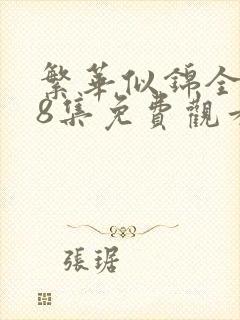 繁華似錦全
8集免費觀
張琚